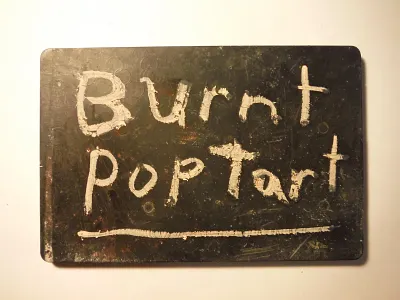 Burnt
PopTart